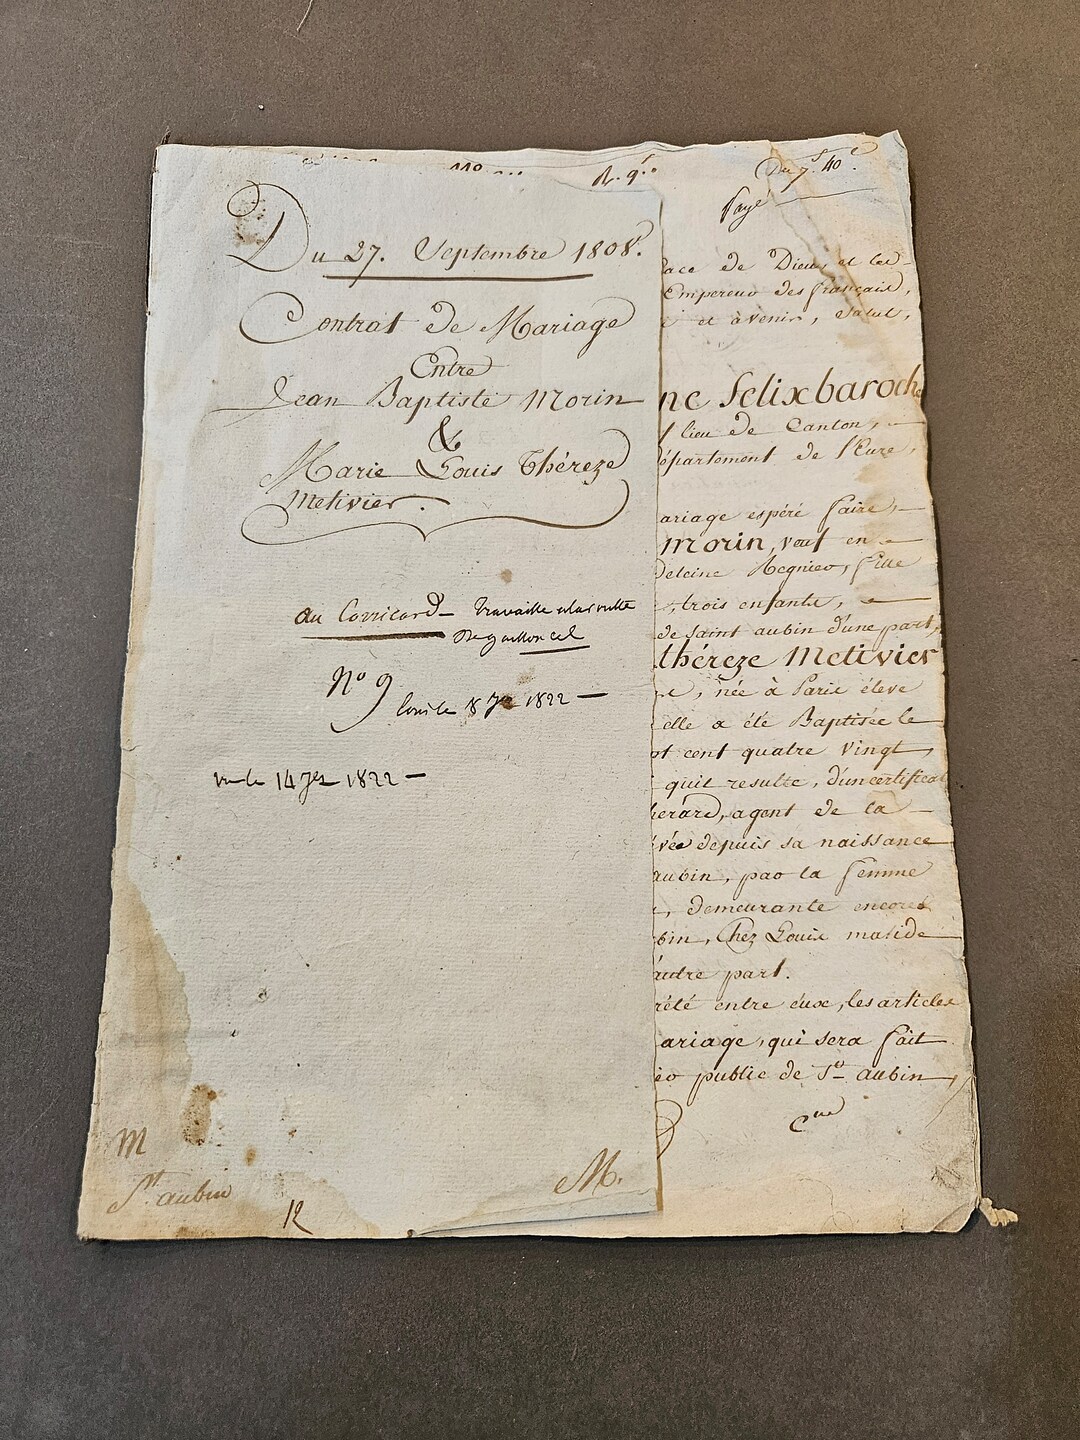 Du 27. Septembre 1808.
Contrat de Mariage
Entre
Jean Baptiste Morin
&
Marie Louis Théreze
Metivier.
au Corricard Travaille a la
N° 9
le 18 1822
vu le 14 1822
M
St. aubin
12
M.
Payé
Dieu, et les
Empereur des français,
et avenir, Salut,
ne felix baroche
lieu de Canton,
département de l'Eure,
ariage espéré faire,
Morin, veuf en
deleine Regnier, fille
trois enfants,
de Saint aubin d'une part,
théreze Metivier
née à Paris éleve
elle a été Baptisée le
pt cent quatre vingt,
quil resulte, d'un certificat
herard, agent de la
vée depuis sa naissance
aubin, par la femme
demeurante encore
bin, Chez Louis malide
autre part.
rété entre eux, les articles
ariage, qui sera fait
public de St aubin,